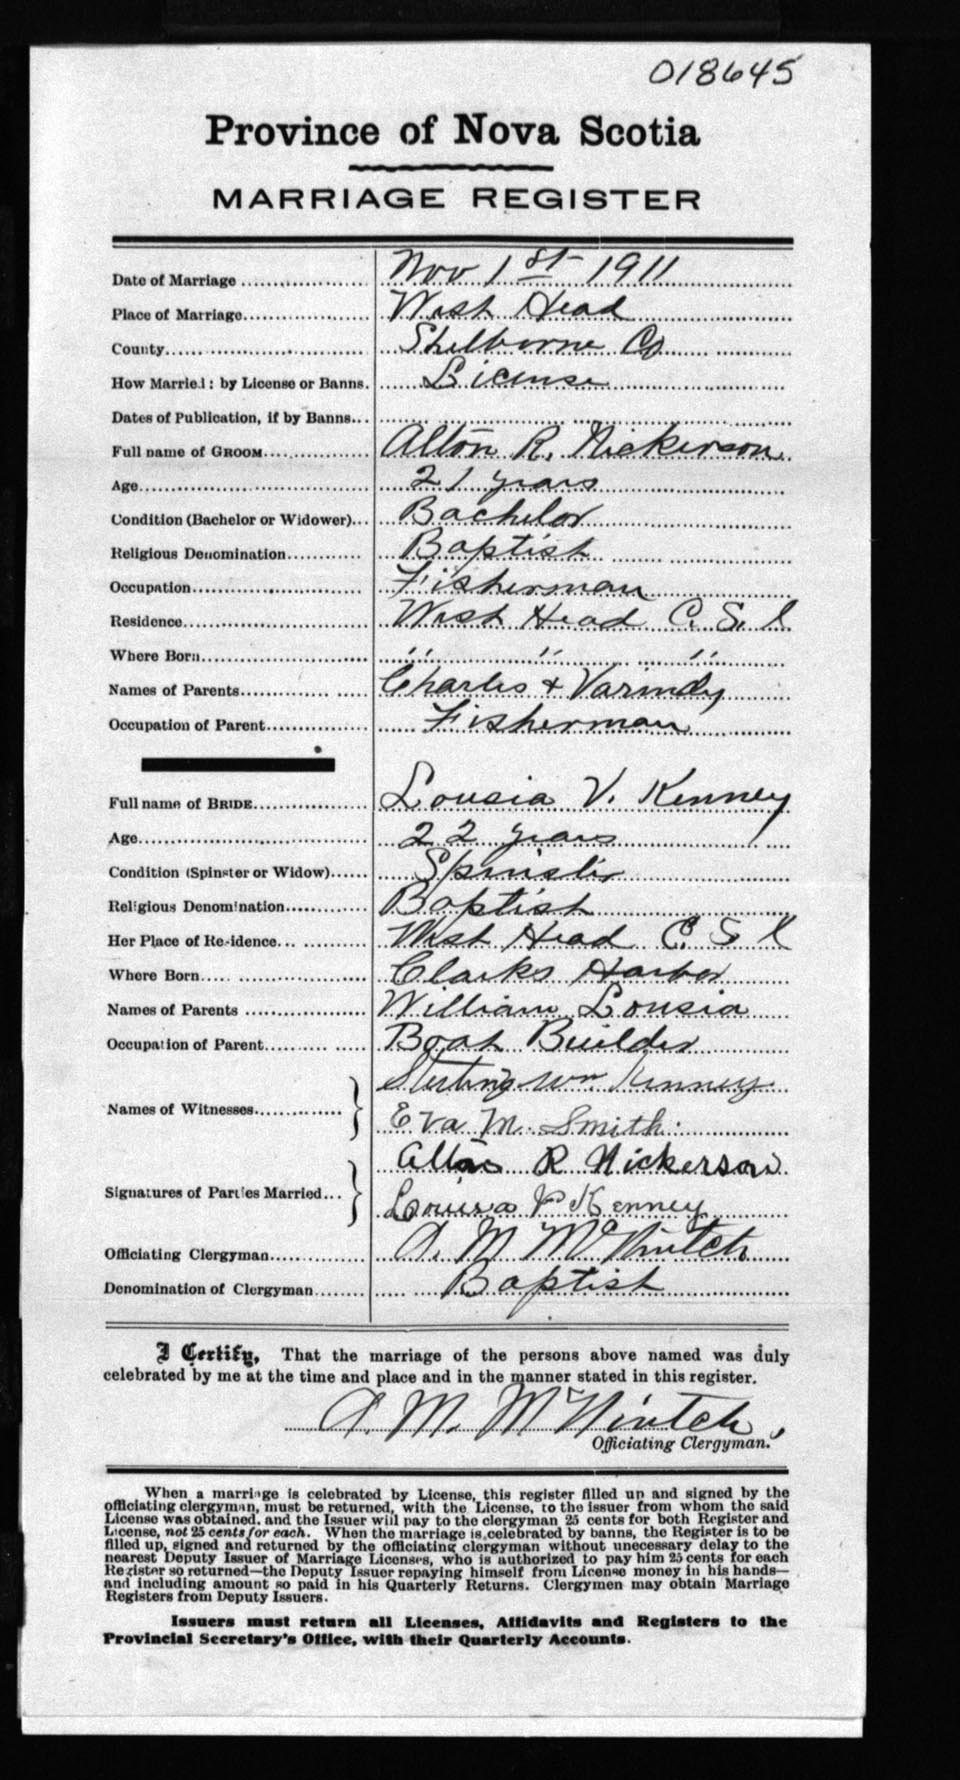 018645
Province of Nova Scotia
MARRIAGE REGISTER
Date of Marriage Nov 1st 1911
Place of Marriage West Head
County Shelborne Co
How Married: by License or Banns. License
Dates of Publication, if by Banns
Full name of GROOM Alton R. Nickerson
Age 21 years
Condition (Bachelor or Widower) Bachelor
Religious Denomination Baptist
Occupation Fisherman
Residence West Head C. S. I
Where Born " " "
Names of Parents Charles + Varindy
Occupation of Parent Fisherman
Full name of BRIDE Lousia V. Kenney
Age 22 years
Condition (Spinster or Widow) Spinster
Religious Denomination Baptist
Her Place of Residence West Head C. S I
Where Born Clarks Harbor
Names of Parents William Lousia
Occupation of Parent Boat Builder
Names of Witnesses Sterling Wm Kenney
Eva M. Smith.
Signatures of Parties Married Alton R Nickerson
Louisa V Kenney
Officiating Clergyman A. M McNintch
Denomination of Clergyman Baptist
I Certify, That the marriage of the persons above named was duly
celebrated by me at the time and place and in the manner stated in this register.
A. M. McNintch,
Officiating Clergyman.
When a marriage is celebrated by License, this register filled up and signed by the
officiating clergyman, must be returned, with the License, to the issuer from whom the said
License was obtained, and the Issuer will pay to the clergyman 25 cents for both Register and
License, not 25 cents for each. When the marriage is celebrated by banns, the Register is to be
filled up, signed and returned by the officiating clergyman without unnecessary delay to the
nearest Deputy Issuer of Marriage Licenses, who is authorized to pay him 25 cents for each
Register so returned—the Deputy Issuer repaying himself from License money in his hands—
and including amount so paid in his Quarterly Returns. Clergymen may obtain Marriage
Registers from Deputy Issuers.
Issuers must return all Licenses, Affidavits and Registers to the
Provincial Secretary's Office, with their Quarterly Accounts.